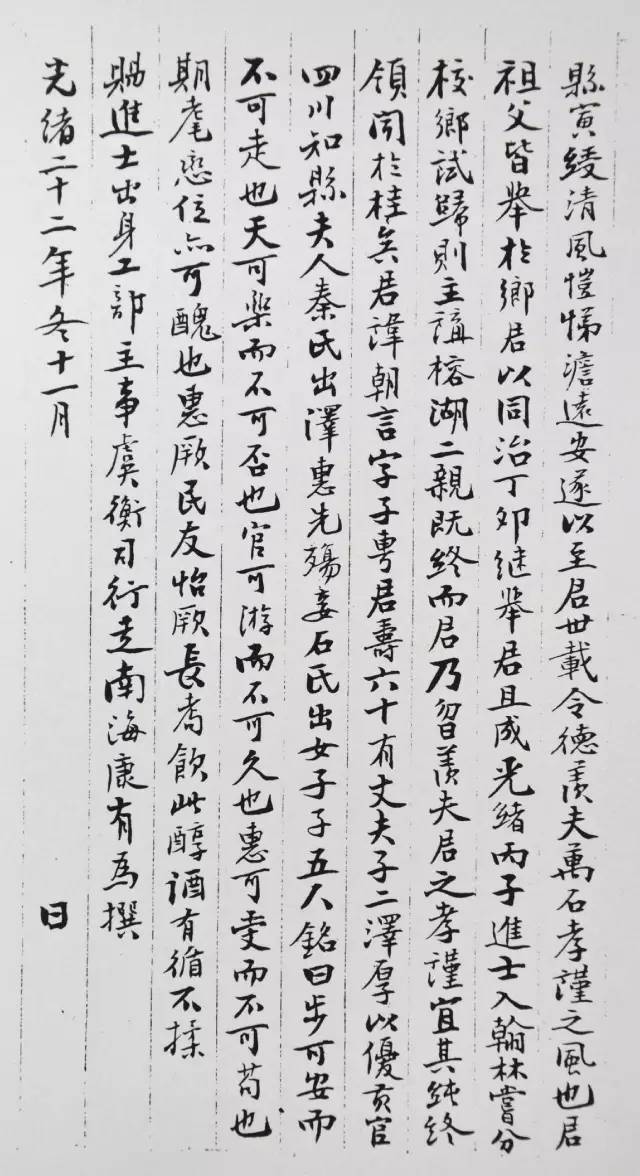 縣寅綾清風愷悌澹遠安遂以至君世載令德羨夫萬石孝謹之風也君
祖父皆舉於鄉君以同治丁卯继舉君且成光緒丙子進士入翰林嘗分
校鄉試歸則主講榕湖二親既終而君乃曶羨夫君之孝謹宜其純終
領聞於桂矣君諱朝言字子専君壽六十有丈夫子二澤厚以優貢官
四川知縣夫人秦氏出澤惠先殤妾石氏出女子子五人銘曰步可安而
不可走也天可樂而不可否也官可游而不可久也惠可受而不可苟也
期耄戀位亦可醜也惠厥民友怡厥長耇飲此醇酒有循不揉
賜進士出身工部主事虞衡司行走南海康有為撰
光緒二十二年冬十一月 日